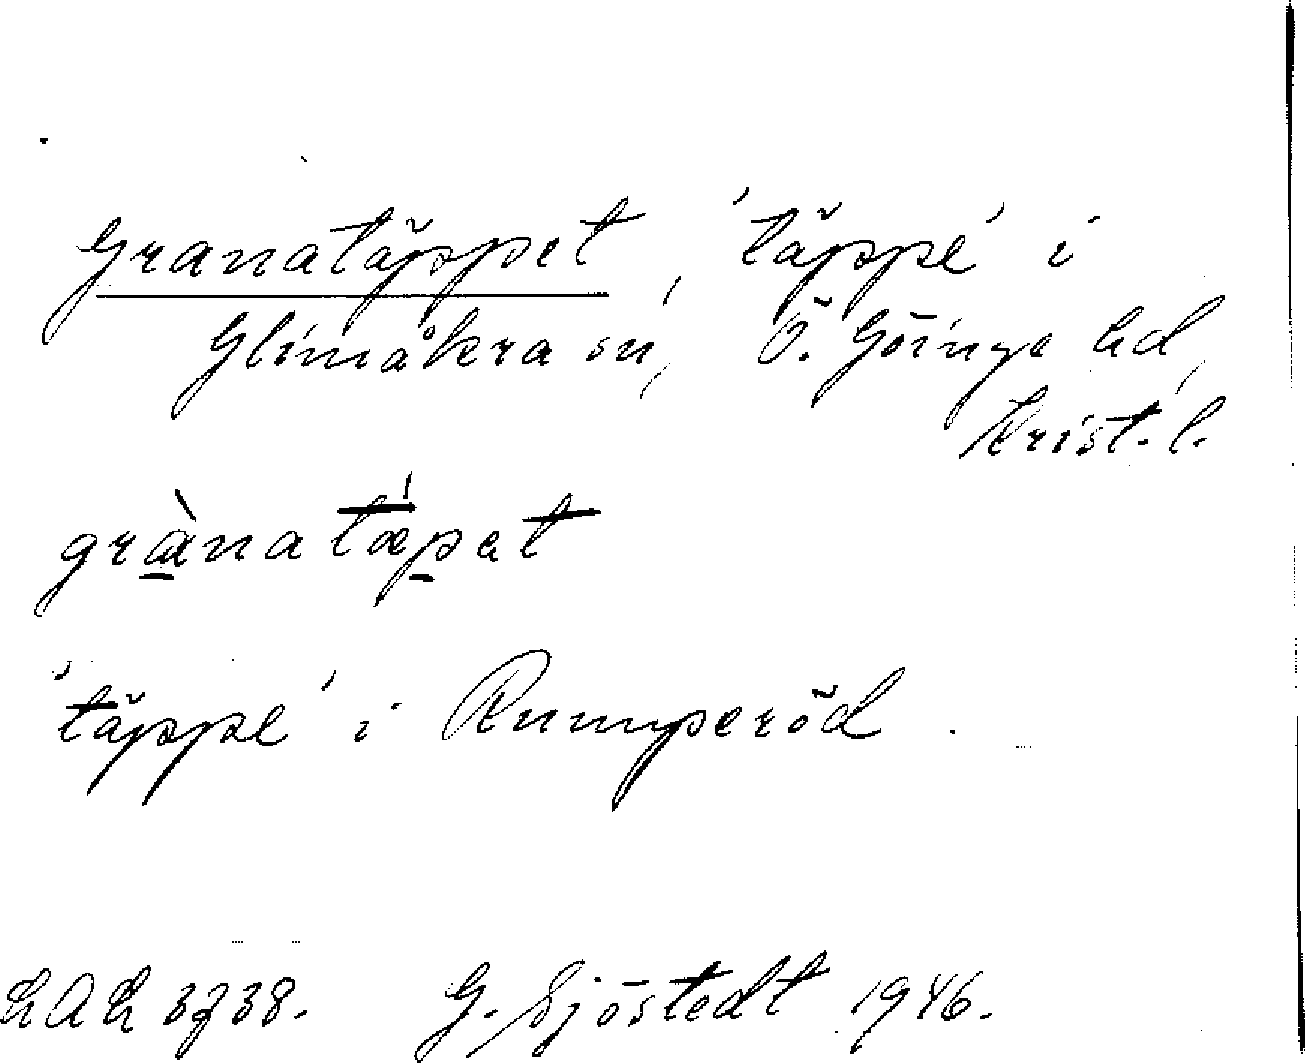 Granatäppet, 'täppe' i
Glimåkra sn, Ö. Göinge hd,
Krist. l.
grànatǽpat
'täppe' i Rumperöd.
LAL 3738. G. Sjöstedt 1946.